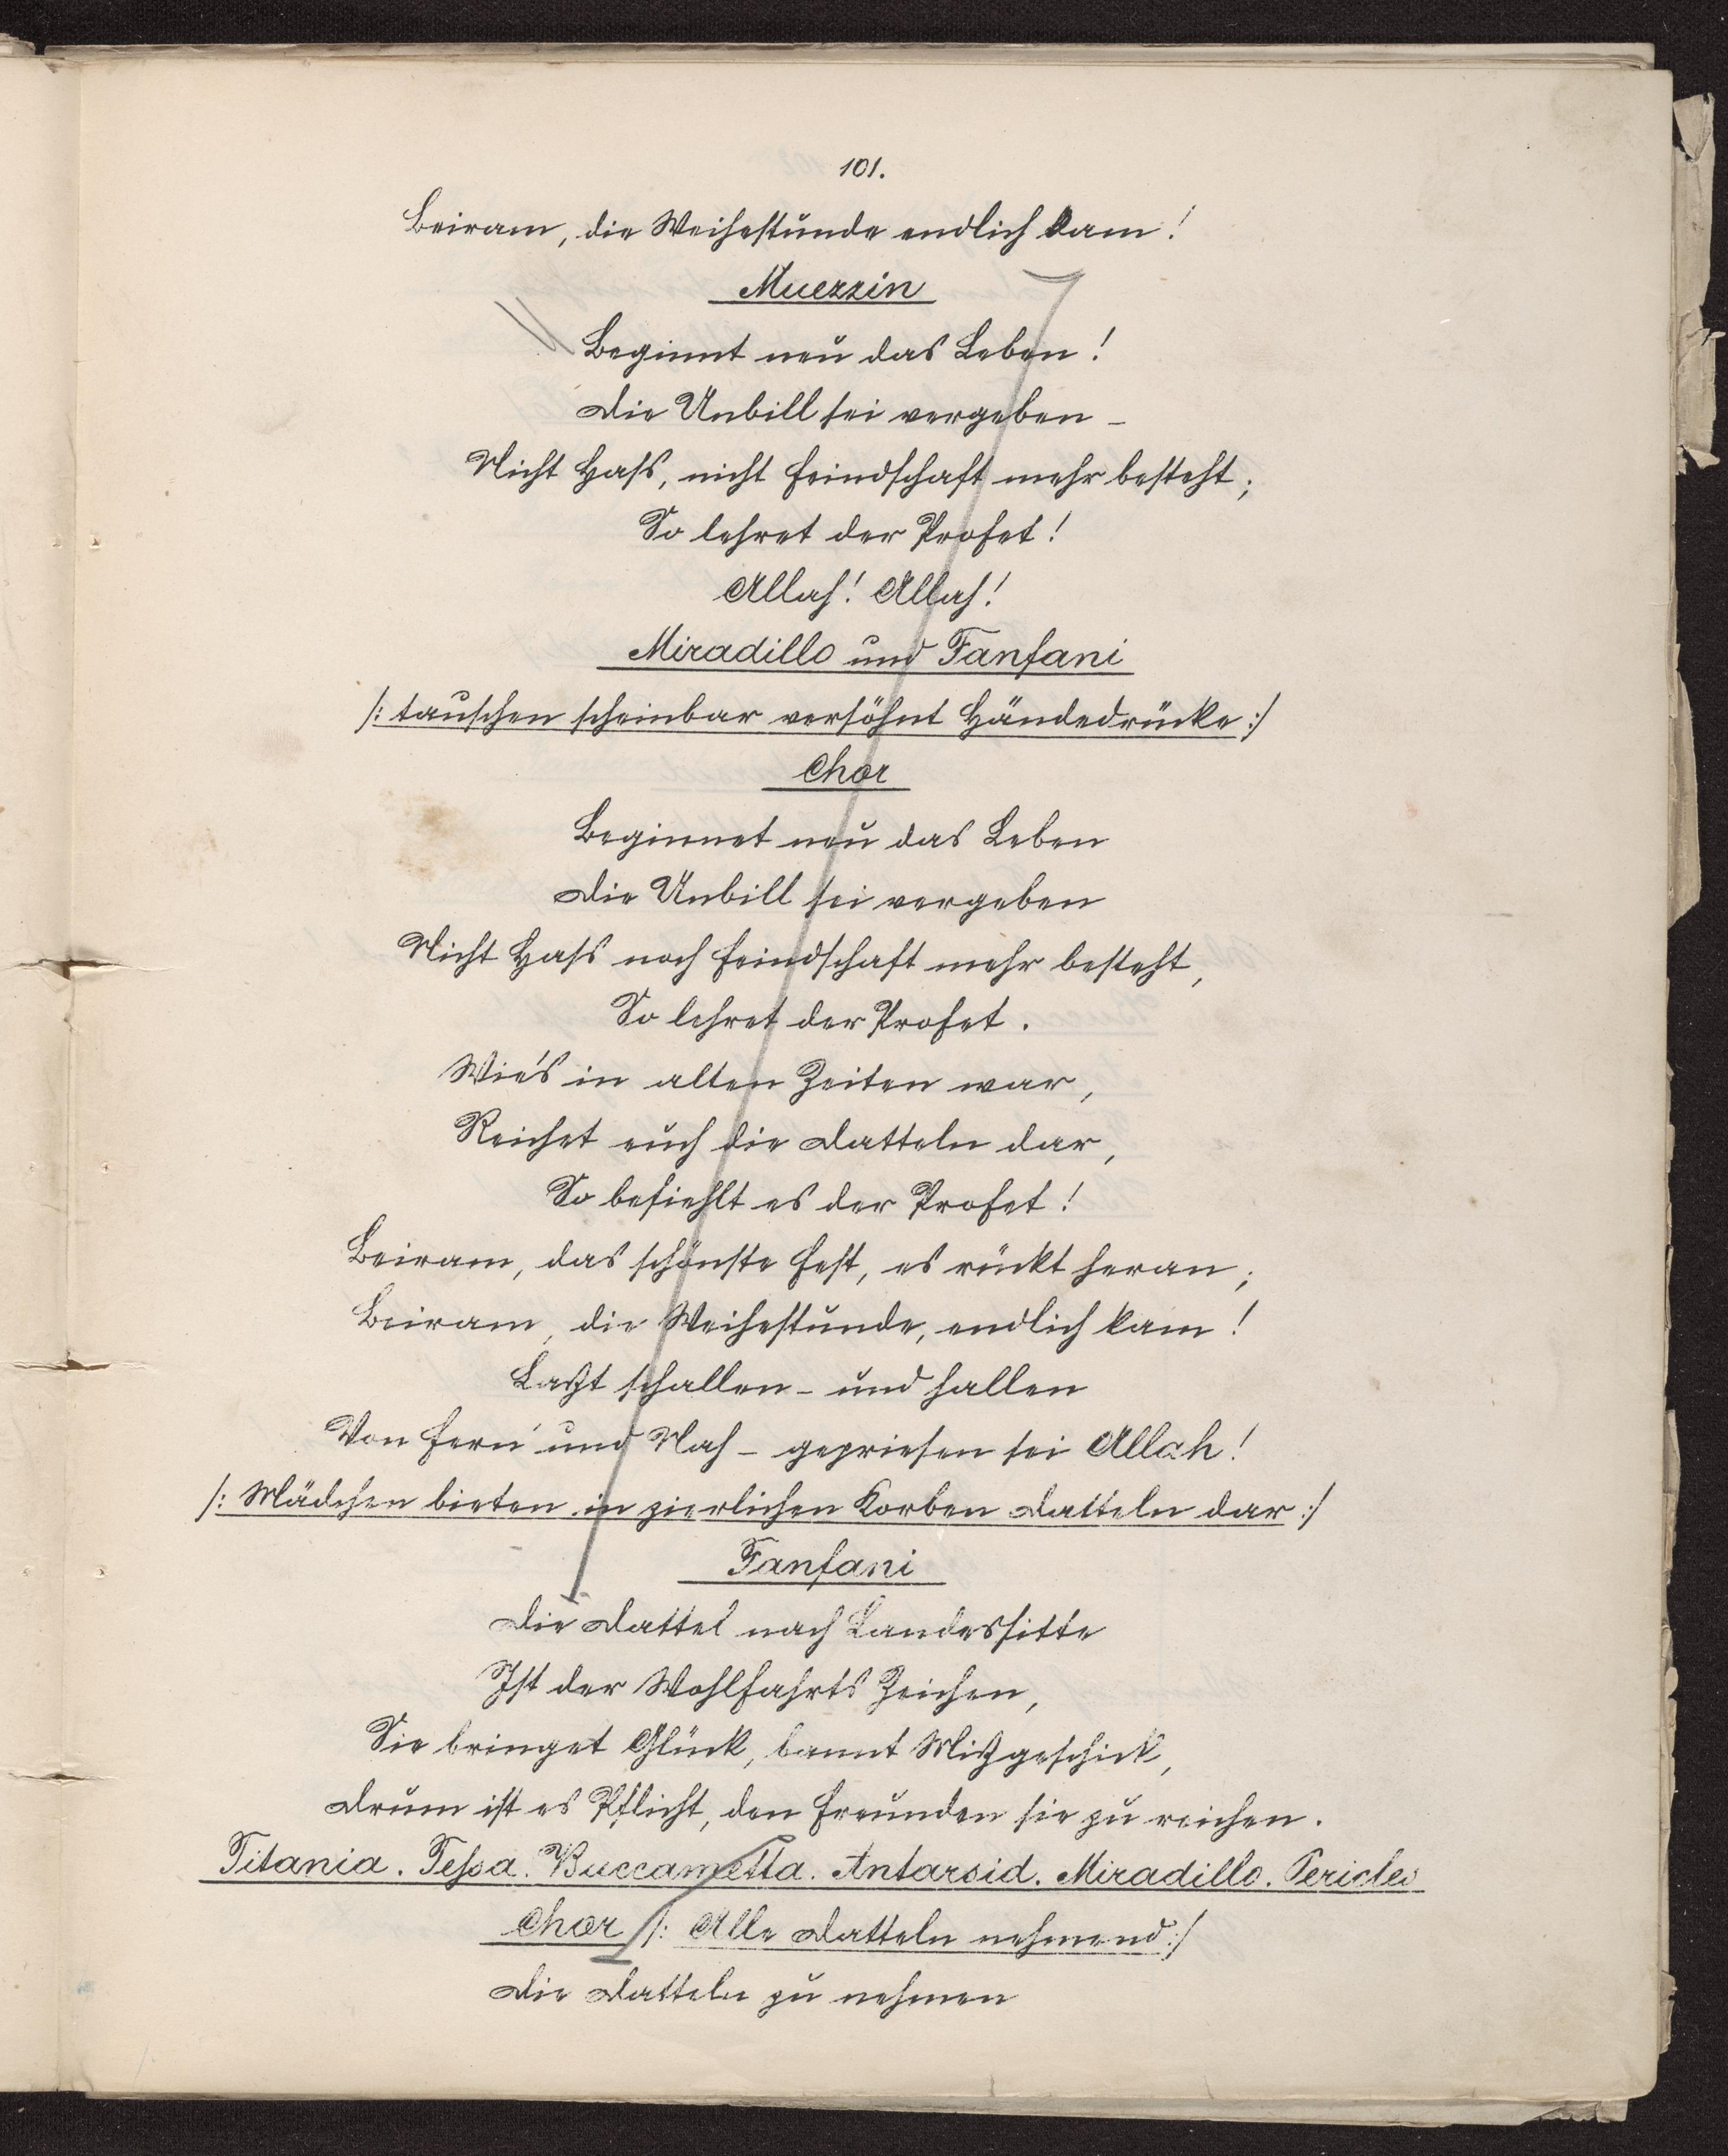 101.
Beiram, die Weihestunde endlich kam!
Muezzin
Beginnt neu das Leben!
Die Unbill sei vergeben -
Nicht Hass, nicht Feindschaft mehr besteht;
So lehret der Profet!
Allah! Allah!
Miradillo und Fanfani
/: tauschen scheinbar versöhnt Händedrücke :/
Chor
Beginnet neu das Leben
Die Unbill sei vergeben
Nicht Hass noch Feindschaft mehr besteht,
So lehret der Profet.
Wie's in alten Zeiten war,
Reichet euch die Datteln dar,
So befiehlt es der Profet!
Beiram, das schönste Fest, es rückt heran;
Beiram, die Weihestunde, endlich kam!
Laßt schallen - und hallen
Von Fern' und Nah - gepriesen sei Allah!
/: Mädchen bieten in zierlichen Korben Datteln dar :/
Fanfani
Die Dattel nach Landessitte
Ist der Wohlfahrts Zeichen,
Sie bringet Glück, bannt Mißgeschick,
Drum ist es Pflicht, den Freunden sie zu reichen.
Titania. Tessa. Buccametta. Antarsid. Miradillo. Pericles
Chor /: Alle Datteln nehmend :/
Die Datteln zu nehmen